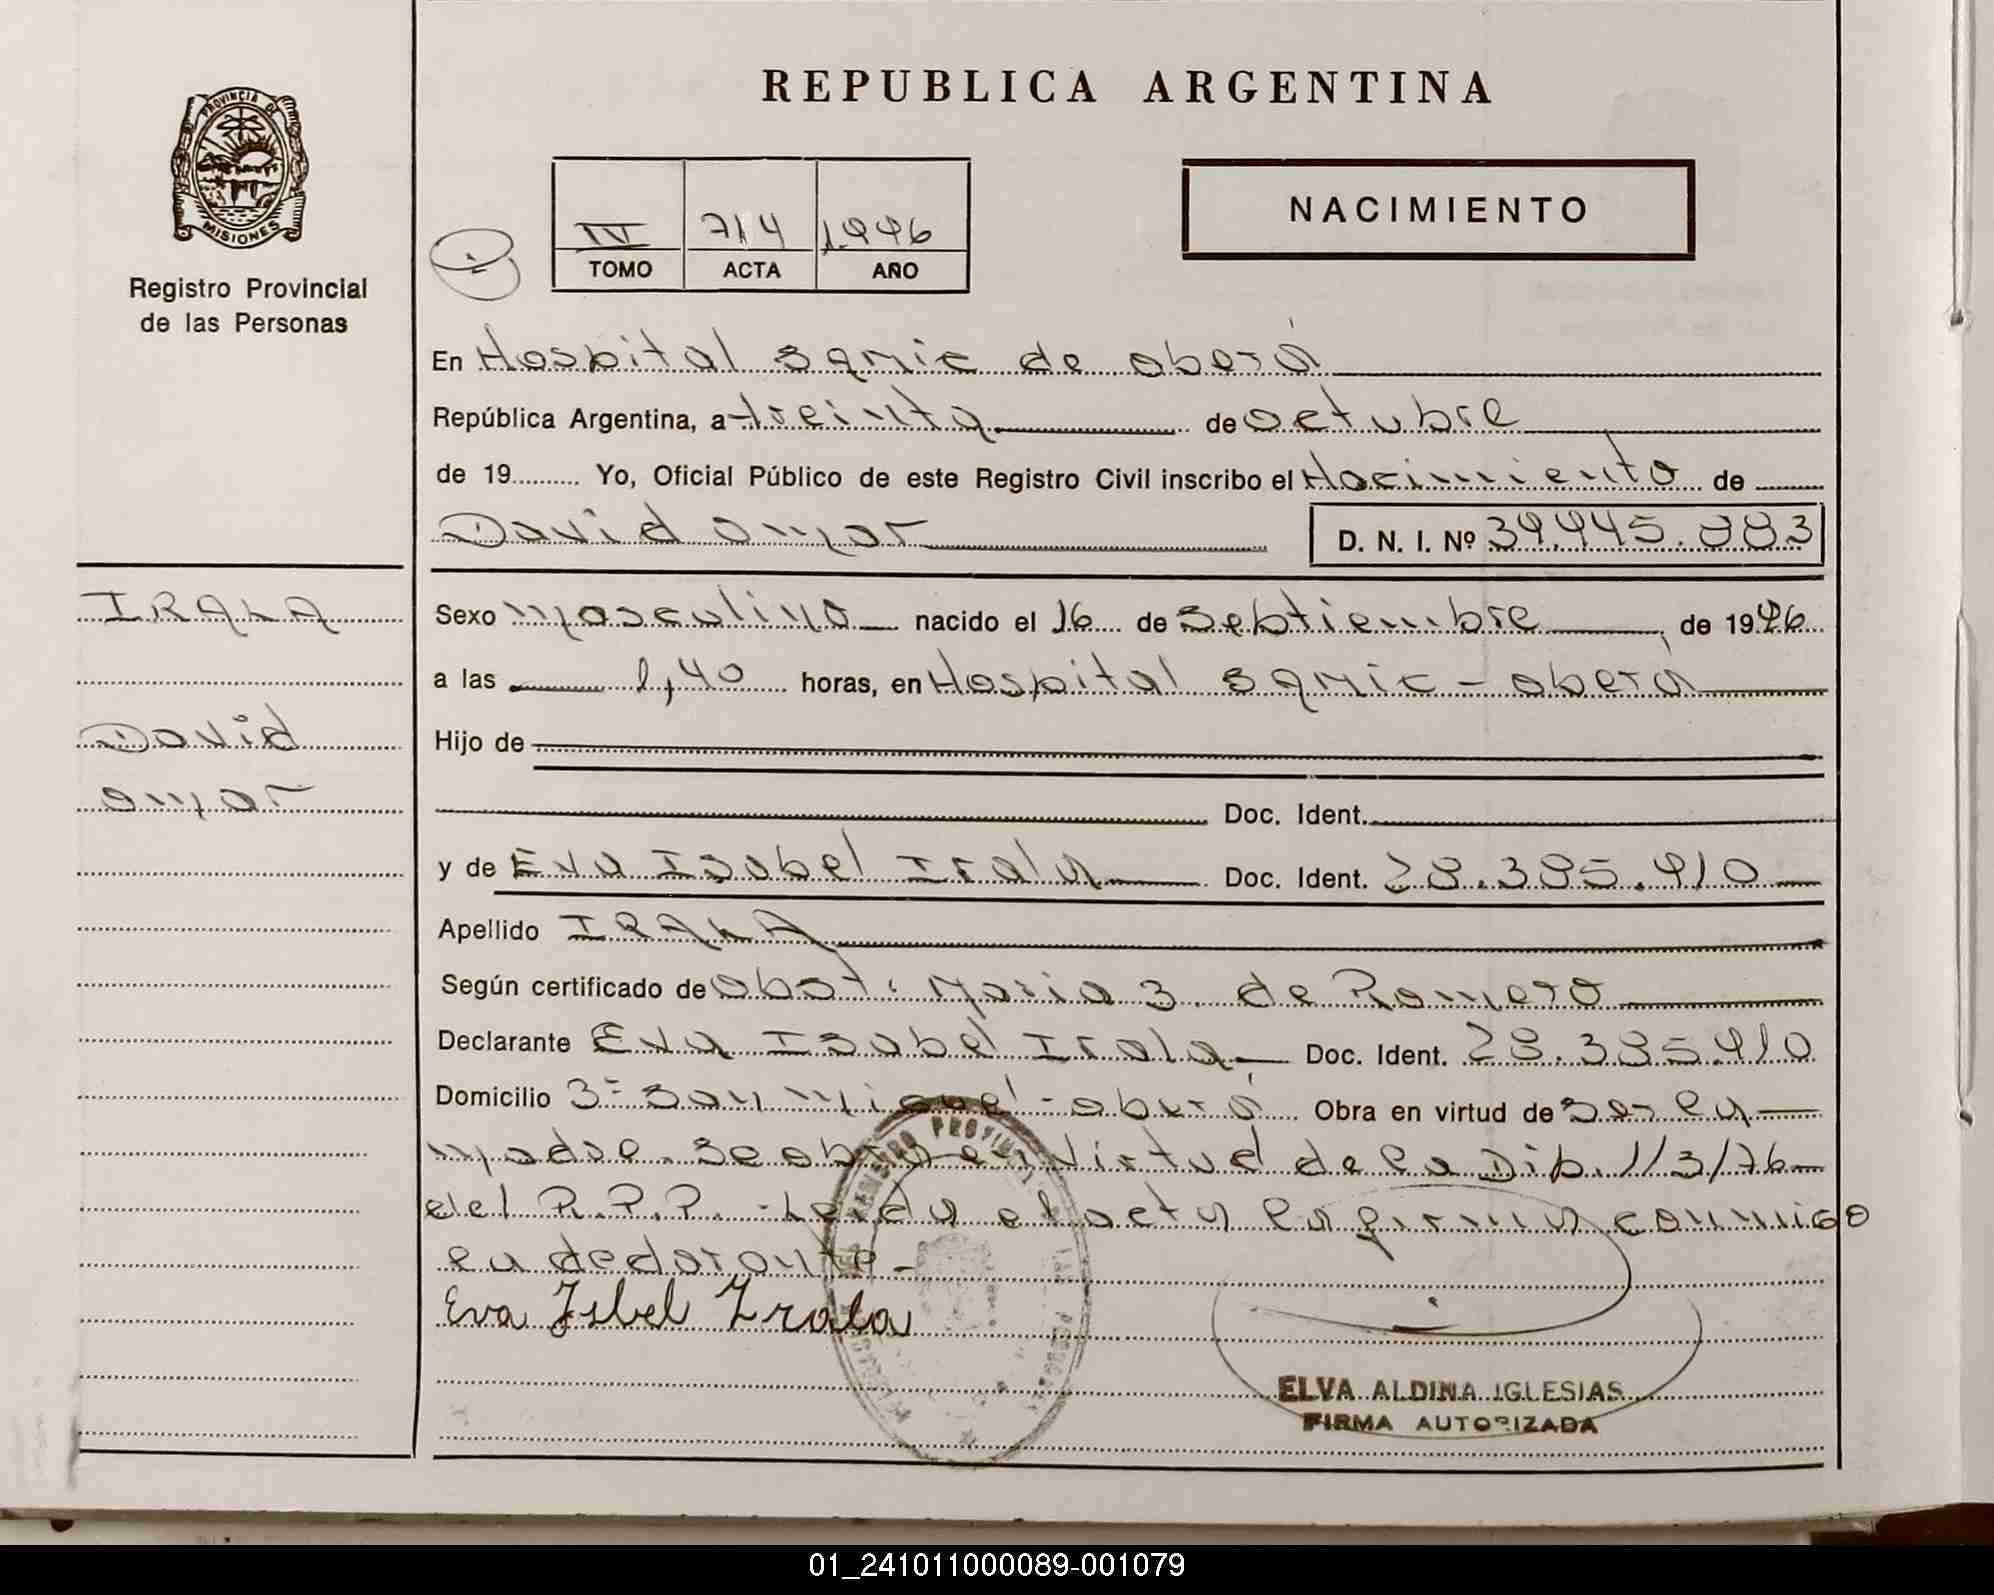 REPUBLICA ARGENTINA
PROVINCIA DE
MISIONES
Registro Provincial
de las Personas
NACIMIENTO
IV 714 1996
TOMO ACTA AÑO
En Hospital Samic de Oberá
República Argentina, a treinta de octubre
de 19.......... Yo, Oficial Público de este Registro Civil inscribo el Nacimiento de
David Omar D. N. I. Nº 39.945.883
IRALA
David
Omar
Sexo Masculino nacido el 16 de Septiembre de 1996
a las 1,40 horas, en Hospital Samic - Oberá
Hijo de
Doc. Ident.
y de Eva Isabel Irala Doc. Ident. 28.385.910
Apellido IRALA
Según certificado de Obst. Maria S. de Romero
Declarante Eva Isabel Irala Doc. Ident. 28.385.910
Domicilio Bº San Miguel - Oberá Obra en virtud de ser la
madre. Se obra en virtud de la Dip. 113/76
del R.P.P. - Leída el acta la firma conmigo
la declarante -
Eva Isbel Irala
ELVA ALDINA IGLESIAS
FIRMA AUTORIZADA
01_241011000089-001079